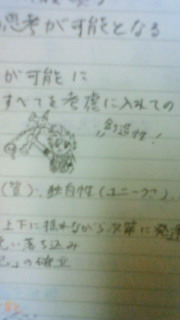 思考が可能となる
が可能に
すべてを考慮に入れての
創造性!
(質)、独自性(ユニークさ)、
上下に揺れながら、次第に発達
落ち込み
の確立